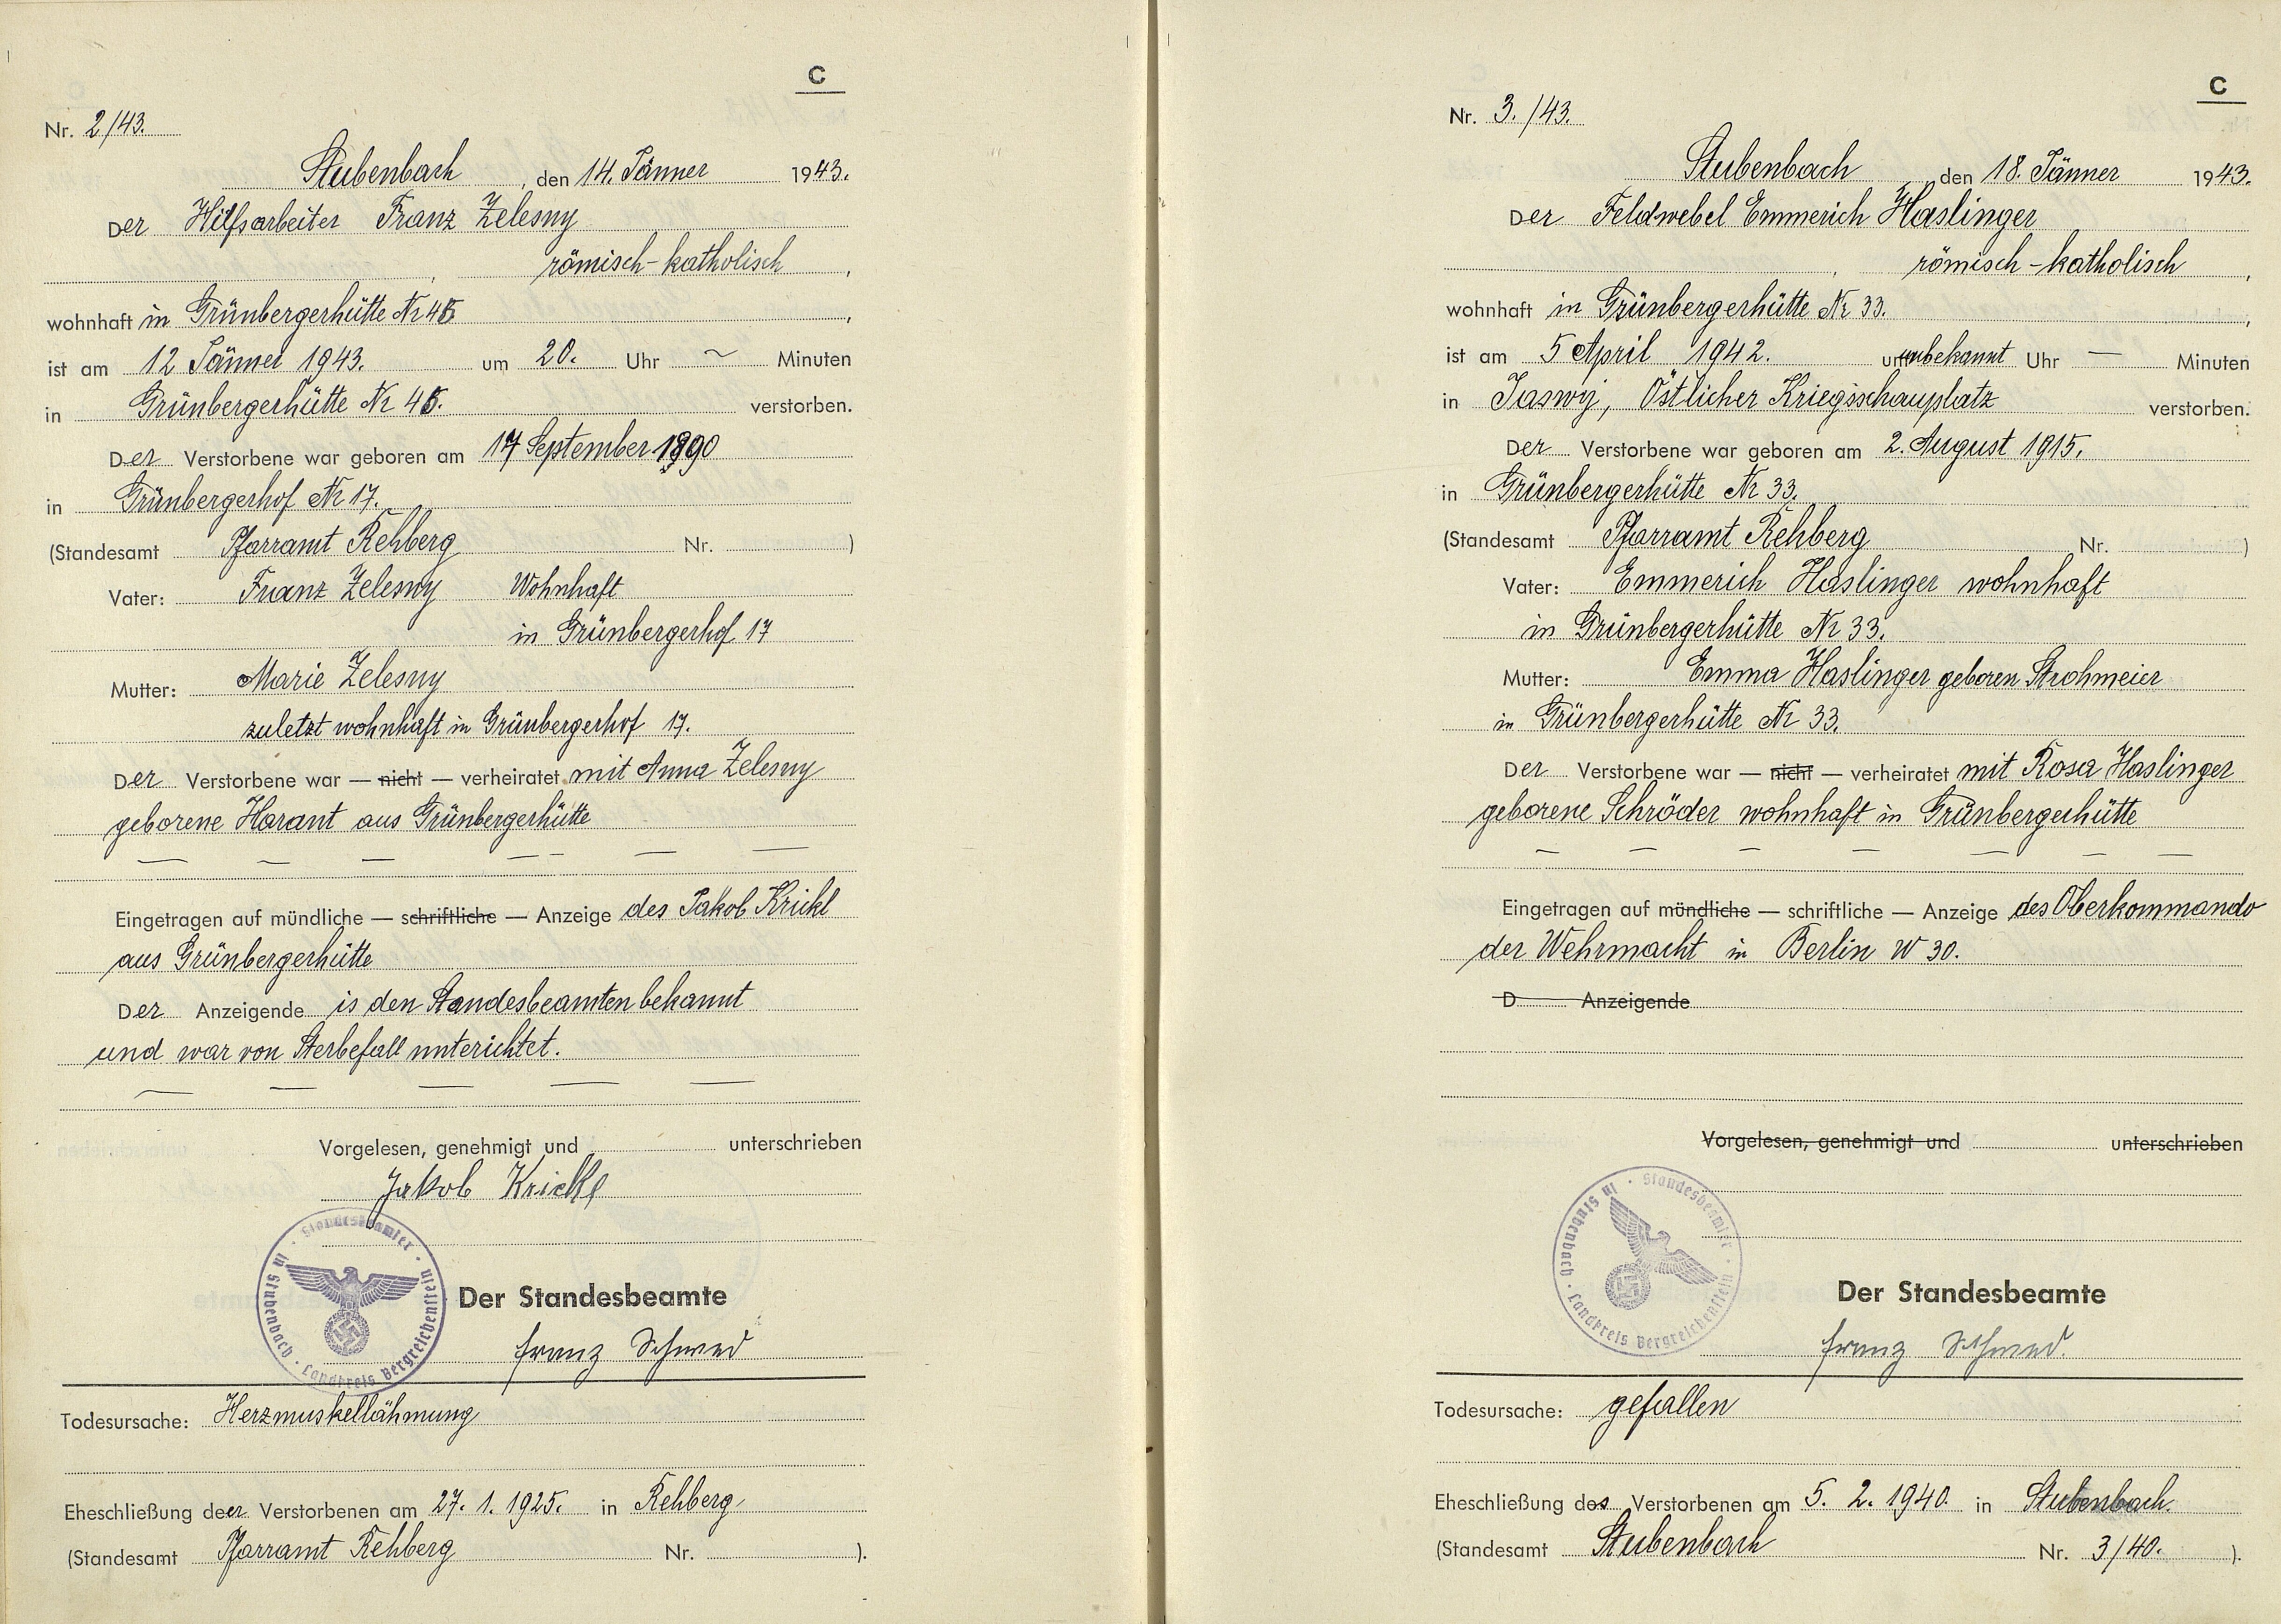 C
Nr. 2/43.
Stubenbach, den 14. Jänner 1943.
Der Hilfsarbeiter Franz Zelesny
, römisch-katholisch,
wohnhaft in Grünbergerhütte Nr 45,
ist am 12 Jänner 1943. um 20. Uhr ~ Minuten
in Grünbergerhütte Nr 45. verstorben.
Der Verstorbene war geboren am 17 September 1890
in Grünbergerhof Nr 17.
(Standesamt Pfarramt Rehberg Nr. )
Vater: Franz Zelesny Wohnhaft
in Grünbergerhof 17
Mutter: Marie Zelesny
zuletzt wohnhaft in Grünbergerhof 17.
Der Verstorbene war — nicht — verheiratet mit Anna Zelesny
geborene Harant aus Grünbergerhütte
Eingetragen auf mündliche — schriftliche — Anzeige des Jakob Krickl
aus Grünbergerhütte
Der Anzeigende is den Standesbeamten bekannt
und war von Sterbefall unterichtet.
Vorgelesen, genehmigt und unterschrieben
Jakob Krickl
Standesbeamter · in Stubenbach · Landkreis Bergreichenstein
Der Standesbeamte
Franz Schmed
Todesursache: Herzmuskellähmung
Eheschließung deer Verstorbenen am 27. 1. 1925. in Rehberg
(Standesamt Pfarramt Rehberg Nr. ).
C
Nr. 3./43.
Stubenbach, den 18. Jänner 1943.
Der Feldwebel Emmerich Haslinger
, römisch-katholisch,
wohnhaft in Grünbergerhütte Nr 33.,
ist am 5 April 1942. um unbekannt Uhr — Minuten
in Jaswy, Östlicher Kriegsschauplatz verstorben.
Der Verstorbene war geboren am 2. August 1915.
in Grünbergerhütte Nr 33.
(Standesamt Pfarramt Rehberg Nr. )
Vater: Emmerich Haslinger wohnhaft
in Grünbergerhütte Nr 33.
Mutter: Emma Haslinger geboren Strohmeier
in Grünbergerhütte Nr 33.
Der Verstorbene war — nicht — verheiratet mit Rosa Haslinger
geborene Schröder wohnhaft in Grünbergerhütte
Eingetragen auf mündliche — schriftliche — Anzeige des Oberkommando
der Wehrmacht in Berlin W 30.
D Anzeigende
Vorgelesen, genehmigt und unterschrieben
Standesbeamter · in Stubenbach · Landkreis Bergreichenstein
Der Standesbeamte
Franz Schmed.
Todesursache: gefallen
Eheschließung des Verstorbenen am 5. 2. 1940. in Stubenbach.
(Standesamt Stubenbach Nr. 3/40. ).